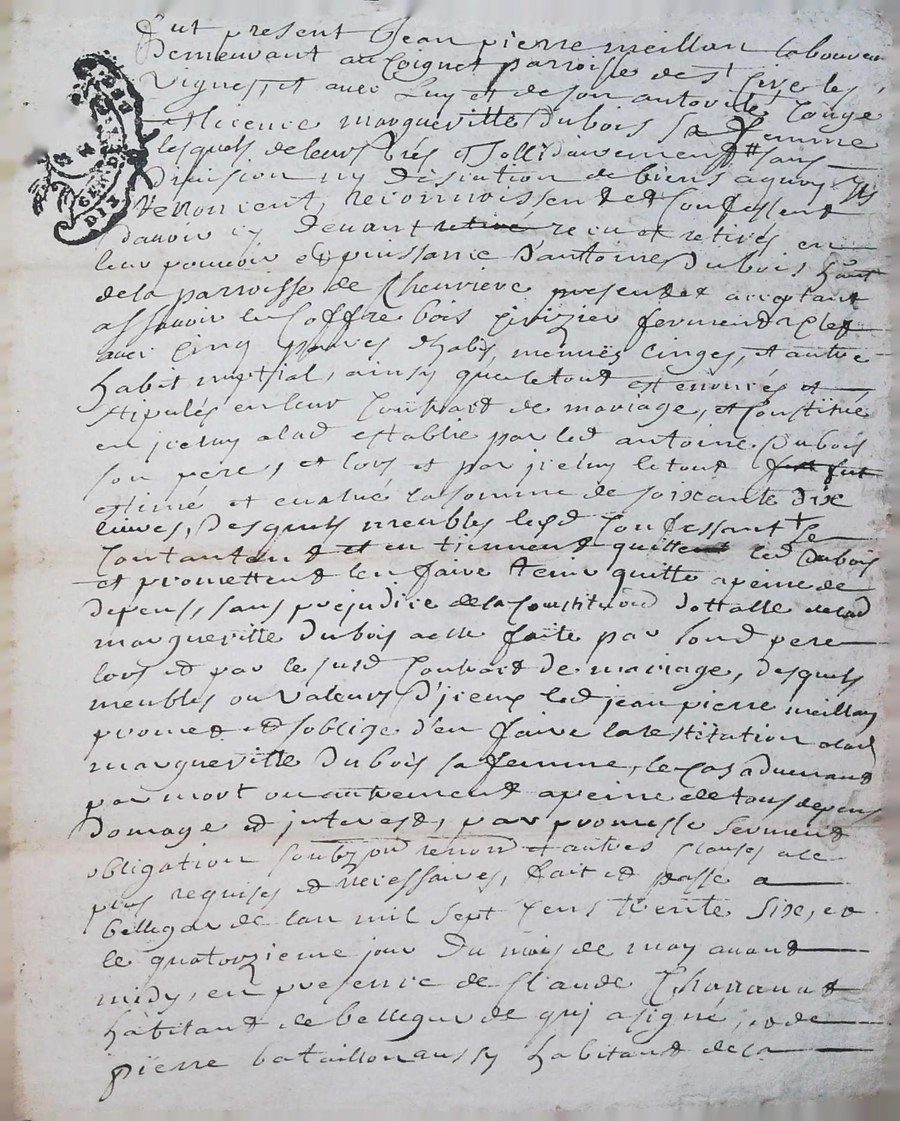 fut present Jean pierre meillan laboureur
Demeurant au Coignet parroisse de st Cire les
Vignes, et avec Luy et de son autorité Congé
et licence margueritte Dubois sa femme
lesquels de leurs grés et sollidairement # sans
Division ny discution de biens a quoy ils
renoncent, reconnoissent et Confessent
davoir cy devant retiré receu et retirés en
leur pouvoir et puissance d'antoine Dubois
de la parroisse de Chevriere present et acceptant
assavoir un Coffre bois cerizier fermend a Clef
avec Cinq habis, menues linges, et autre
habit nuptial, ainsy que le tout est enoncés et
stipulés en leur Contract de mariage, et Constitué
en jceluy a lad establie par led antoine Dubois
son pere, et lors et par jceluy le tout fut
estimé et evalué la somme de soixante dix
livres, Desquels meubles lesd Confessant se
Contantent et en tiennent quitte led Dubois
et promettend l'en faire tenir quitte a peine de
depens, sans prejudice de la Constituõn dottalle de lad
margueritte Dubois a elle faite par sond pere
lors et par le susd Contract de mariage, desquels
meubles ou valeurs d'jceux led jean pierre meillan
promet et s'oblige d'en faire la restitution a lad
margueritte Dubois sa femme, le Cas advenand
par mort ou autrement a peine de tous depens
Domage et interest, par promesse serment
obligation soubzon renon et autres Clauses a ce
plus requises et necessaires, fait et passé a
bellegarde l'an mil sept Cens trente Six, et
le quatorzieme jour Du mois de may avand
midy, en presence de Claude
habitant de bellegarde qui a signé, et de
pierre bataillon aussy habitant de la